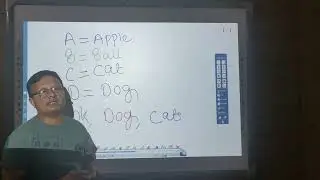 A = Apple
B = Ball
C = Cat
D = Dog,
Dog, Cat